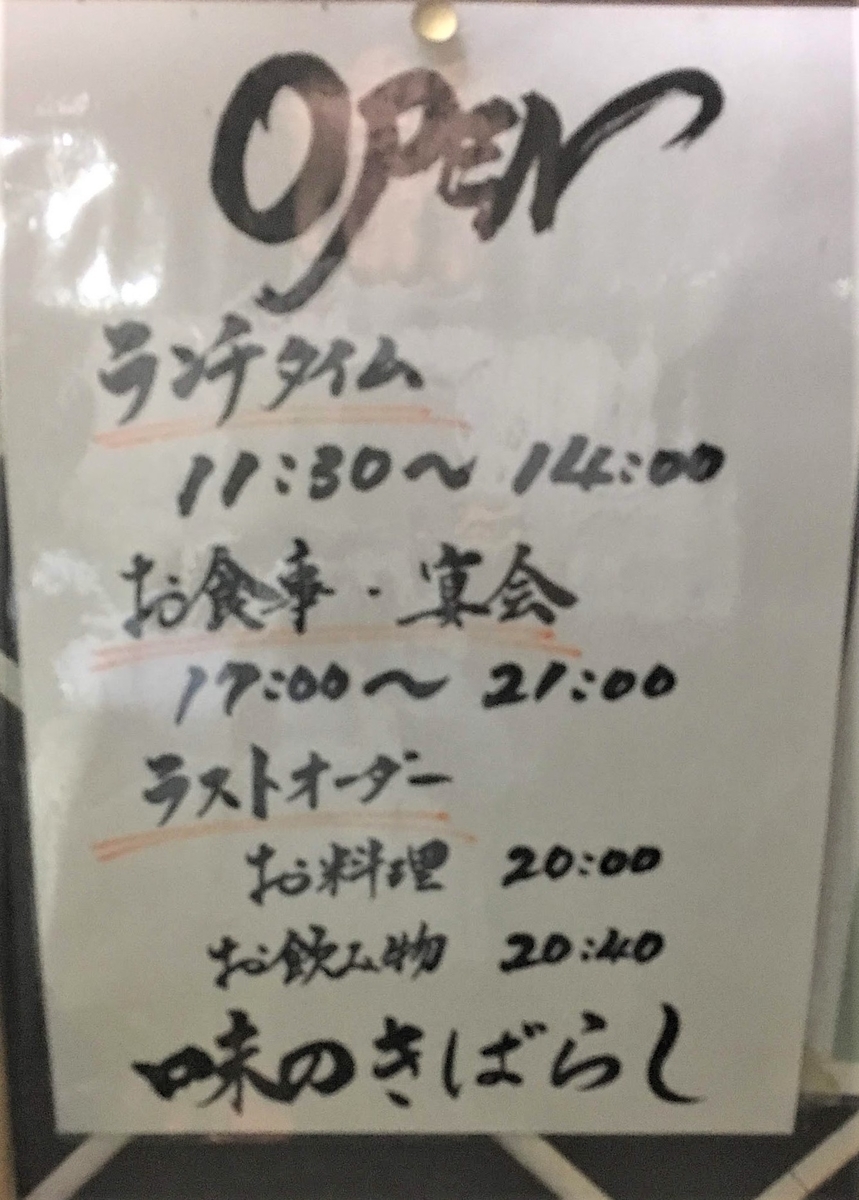 OPEN
ランチタイム
11:30〜14:00
お食事・宴会
17:00〜21:00
ラストオーダー
お料理 20:00
お飲み物 20:40
味のきばらし